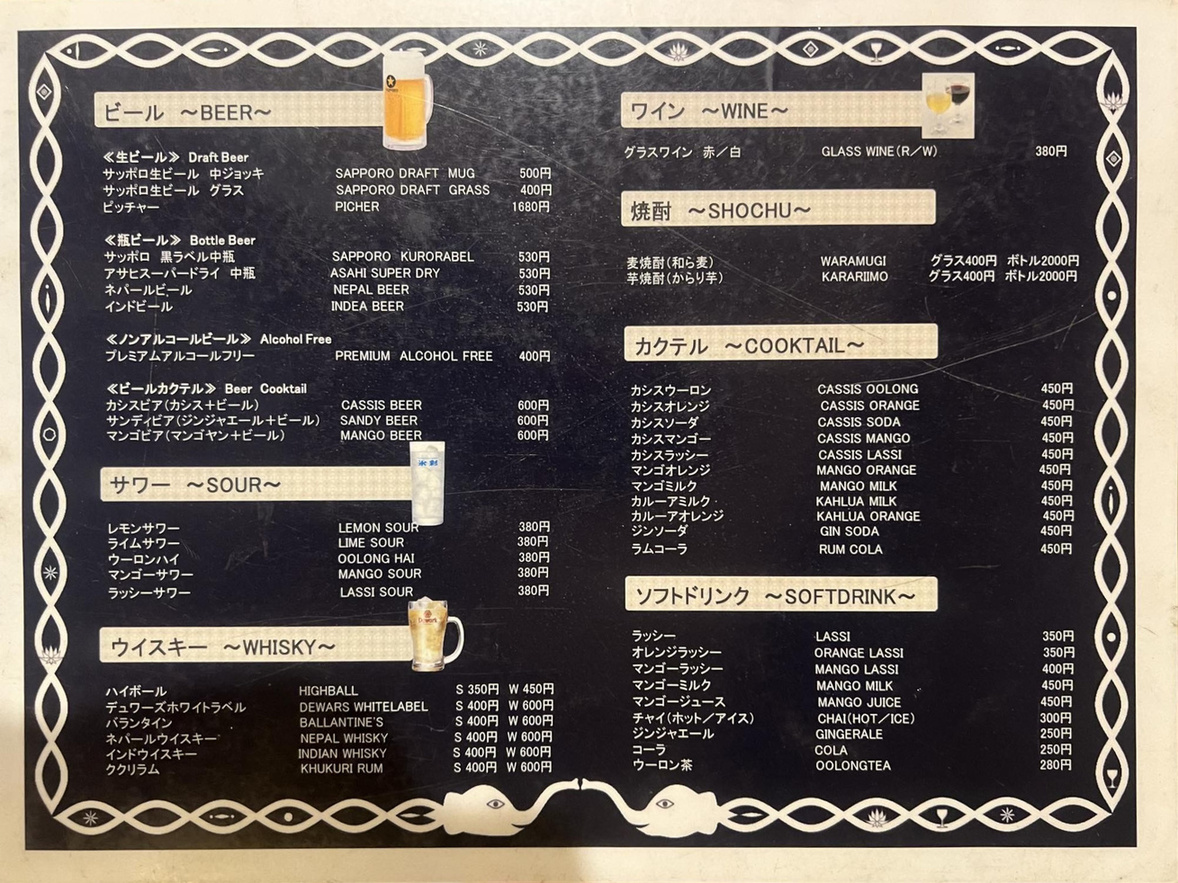 ビール ～BEER～
≪生ビール≫ Draft Beer
サッポロ生ビール 中ジョッキ SAPPORO DRAFT MUG 500円
サッポロ生ビール グラス SAPPORO DRAFT GRASS 400円
ピッチャー PICHER 1680円
≪瓶ビール≫ Bottle Beer
サッポロ 黒ラベル中瓶 SAPPORO KURORABEL 530円
アサヒスーパードライ 中瓶 ASAHI SUPER DRY 530円
ネパールビール NEPAL BEER 530円
インドビール INDEA BEER 530円
≪ノンアルコールビール≫ Alcohol Free
プレミアムアルコールフリー PREMIUM ALCOHOL FREE 400円
≪ビールカクテル≫ Beer Cooktail
カシスビア(カシス＋ビール) CASSIS BEER 600円
サンディビア(ジンジャエール＋ビール) SANDY BEER 600円
マンゴビア(マンゴヤン＋ビール) MANGO BEER 600円
サワー ～SOUR～
氷彩
レモンサワー LEMON SOUR 380円
ライムサワー LIME SOUR 380円
ウーロンハイ OOLONG HAI 380円
マンゴーサワー MANGO SOUR 380円
ラッシーサワー LASSI SOUR 380円
ウイスキー ～WHISKY～
Dewar's
ハイボール HIGHBALL S 350円 W 450円
デュワーズホワイトラベル DEWARS WHITELABEL S 400円 W 600円
バランタイン BALLANTINE'S S 400円 W 600円
ネパールウイスキー NEPAL WHISKY S 400円 W 600円
インドウイスキー INDIAN WHISKY S 400円 W 600円
ククリラム KHUKURI RUM S 400円 W 600円
ワイン ～WINE～
グラスワイン 赤／白 GLASS WINE(R／W) 380円
焼酎 ～SHOCHU～
麦焼酎(和ら麦) WARAMUGI グラス400円 ボトル2000円
芋焼酎(からり芋) KARARIIMO グラス400円 ボトル2000円
カクテル ～COOKTAIL～
カシスウーロン CASSIS OOLONG 450円
カシスオレンジ CASSIS ORANGE 450円
カシスソーダ CASSIS SODA 450円
カシスマンゴー CASSIS MANGO 450円
カシスラッシー CASSIS LASSI 450円
マンゴオレンジ MANGO ORANGE 450円
マンゴミルク MANGO MILK 450円
カルーアミルク KAHLUA MILK 450円
カルーアオレンジ KAHLUA ORANGE 450円
ジンソーダ GIN SODA 450円
ラムコーラ RUM COLA 450円
ソフトドリンク ～SOFTDRINK～
ラッシー LASSI 350円
オレンジラッシー ORANGE LASSI 350円
マンゴーラッシー MANGO LASSI 400円
マンゴーミルク MANGO MILK 450円
マンゴージュース MANGO JUICE 450円
チャイ(ホット／アイス) CHAI(HOT／ICE) 300円
ジンジャエール GINGERALE 250円
コーラ COLA 250円
ウーロン茶 OOLONGTEA 280円